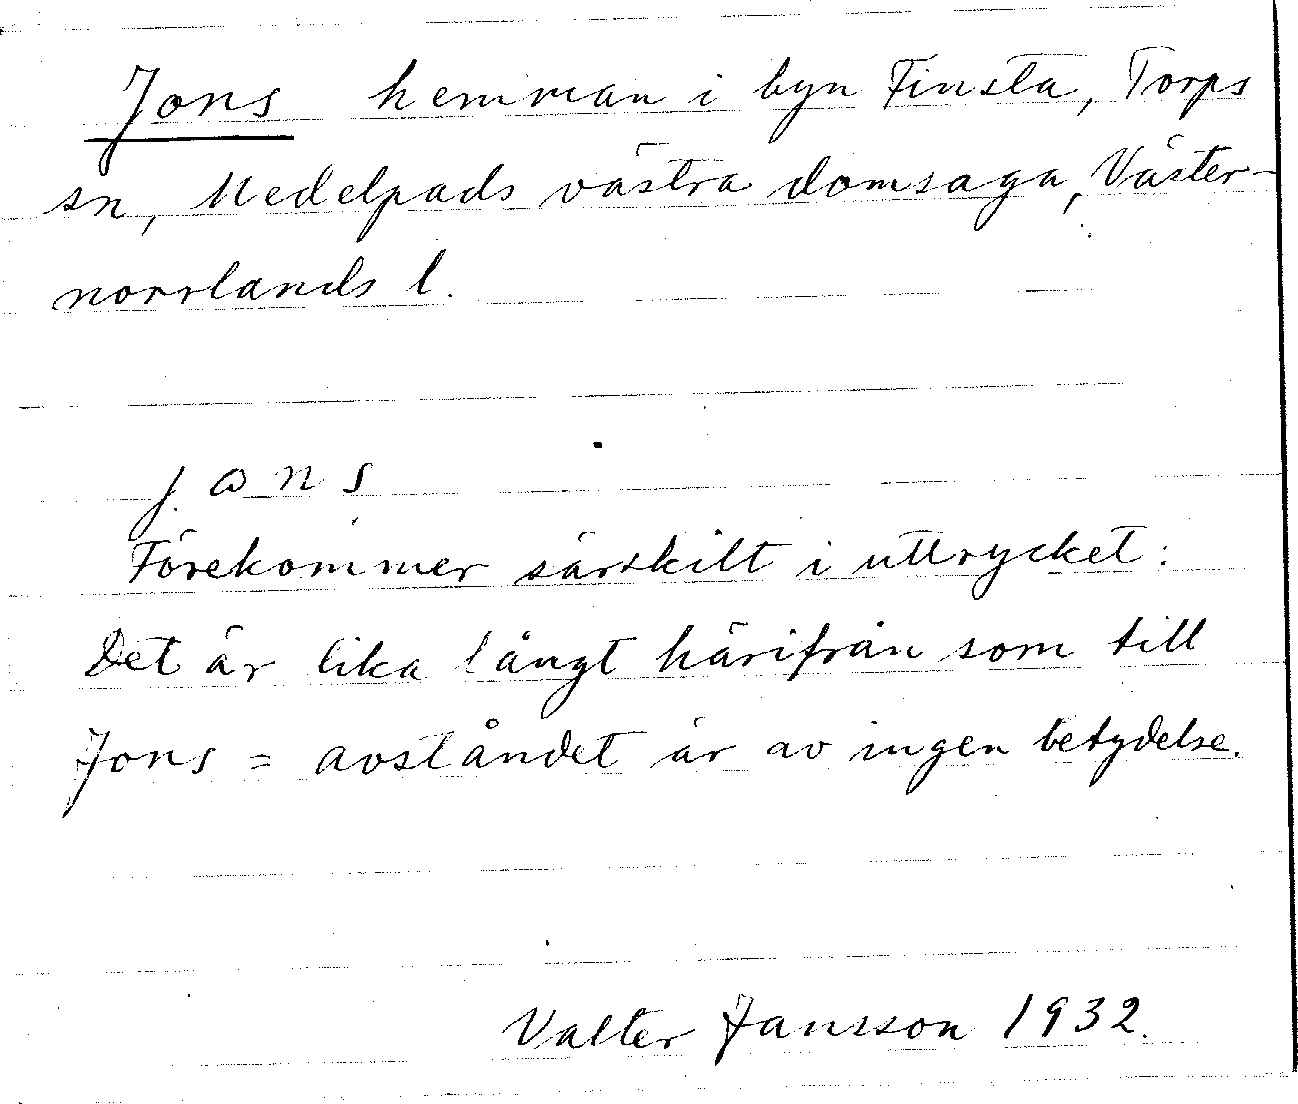 Jons hemman i byn Finsta, Torps
sn, Medelpads västra domsaga, Väster-
norrlands l.
jons
Förekommer särskilt i uttrycket:
Det är lika långt härifrån som till
Jons = avståndet är av ingen betydelse.
Valter Jansson 1932.